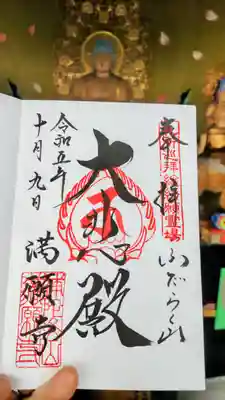 奉拝
ふだらく山
大悲殿
令和五年
十月九日
満願寺